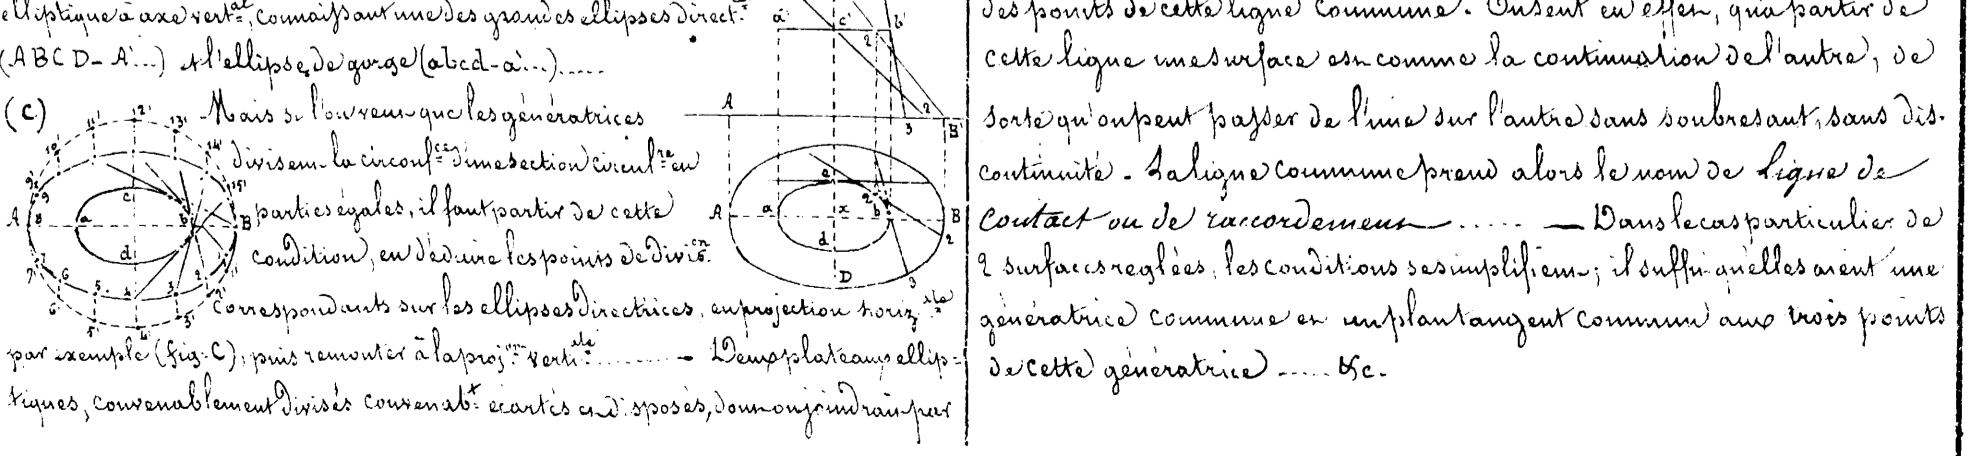 elliptique à axe vert.al, connaissant une des grandes ellipses direct.
(ABCD-A'...) et l'ellipse de gorge (abcd-a'...).....
(C) Mais si l'on veut que les génératrices
divisent la circonf.ce d'une section circul.re en
parties égales, il faut partir de cette
condition, en déduire les points de divis.on
correspondants sur les ellipses directrices, en projection horiz.ale
par exemple (fig. C), puis remonter à la proj.on vert.ale ........ — Deux plateaux ellip=
tiques, convenablement divisés convenab.t écartés et disposés, dont on joindrait par
des points de cette ligne commune. On sent en effet, qu'à partir de
cette ligne une surface est comme la continuation de l'autre, de
sorte qu'on peut passer de l'une sur l'autre sans soubresaut, sans dis-
continuité. La ligne commune prend alors le nom de Ligne de
Contact ou de raccordement ..... — Dans le cas particulier de
2 surfaces reglées, les conditions se simplifient; il suffit qu'elles aient une
génératrice commune et un plan tangent commun aux trois points
de cette génératrice ..... &c.